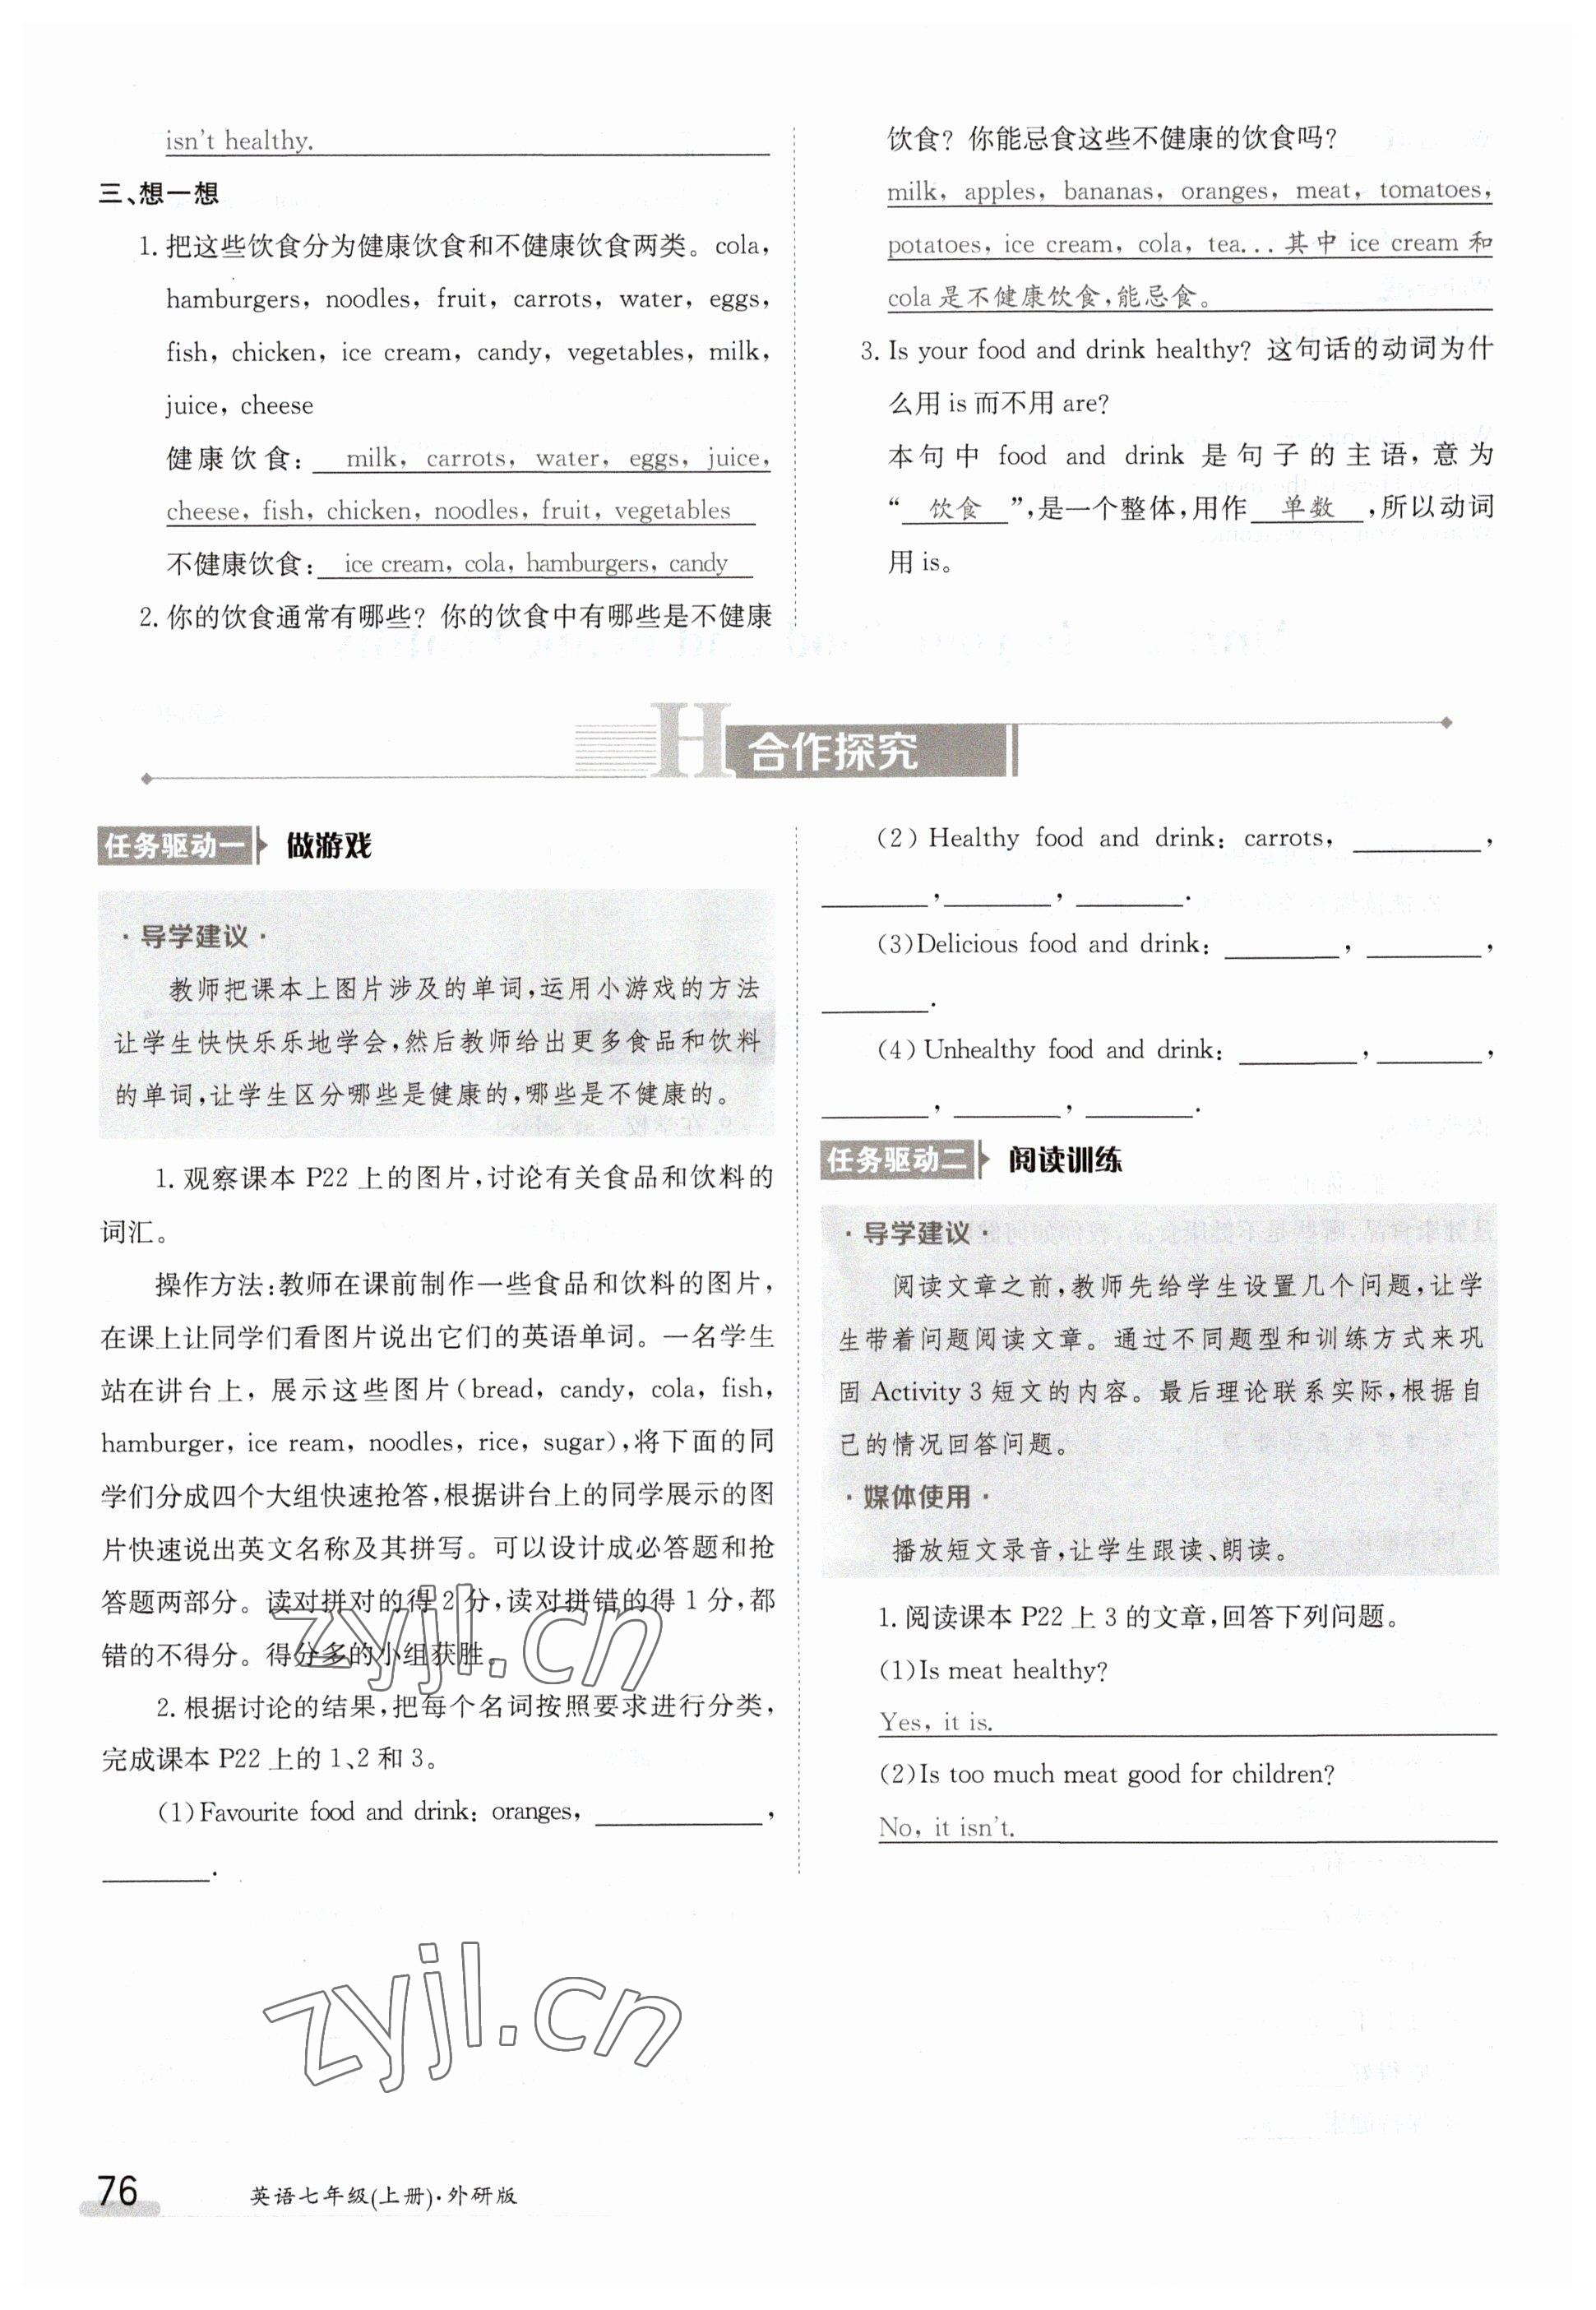 isn't healthy.
三、想一想
1. 把这些饮食分为健康饮食和不健康饮食两类。cola,
hamburgers, noodles, fruit, carrots, water, eggs,
fish, chicken, ice cream, candy, vegetables, milk,
juice, cheese
健康饮食: milk, carrots, water, eggs, juice,
cheese, fish, chicken, noodles, fruit, vegetables
不健康饮食: ice cream, cola, hamburgers, candy
2. 你的饮食通常有哪些? 你的饮食中有哪些是不健康
饮食? 你能忌食这些不健康的饮食吗?
milk, apples, bananas, oranges, meat, tomatoes,
potatoes, ice cream, cola, tea...其中 ice cream 和
cola是不健康饮食,能忌食。
3. Is your food and drink healthy? 这句话的动词为什
么用 is 而不用 are?
本句中 food and drink 是句子的主语,意为
“ 饮食 ”,是一个整体,用作 单数 ,所以动词
用 is。
H 合作探究
任务驱动一 做游戏
·导学建议·
教师把课本上图片涉及的单词,运用小游戏的方法
让学生快快乐乐地学会,然后教师给出更多食品和饮料
的单词,让学生区分哪些是健康的,哪些是不健康的。
1. 观察课本 P22 上的图片,讨论有关食品和饮料的
词汇。
操作方法:教师在课前制作一些食品和饮料的图片,
在课上让同学们看图片说出它们的英语单词。一名学生
站在讲台上,展示这些图片(bread, candy, cola, fish,
hamburger, ice ream, noodles, rice, sugar),将下面的同
学们分成四个大组快速抢答,根据讲台上的同学展示的图
片快速说出英文名称及其拼写。可以设计成必答题和抢
答题两部分。读对拼对的得 2 分,读对拼错的得 1 分,都
错的不得分。得分多的小组获胜。
2. 根据讨论的结果,把每个名词按照要求进行分类,
完成课本 P22 上的 1、2 和 3。
(1)Favourite food and drink: oranges, ________,
________.
(2) Healthy food and drink: carrots, ________,
________, ________, ________.
(3)Delicious food and drink: ________, ________,
________.
(4) Unhealthy food and drink: ________, ________,
________, ________, ________.
任务驱动二 阅读训练
·导学建议·
阅读文章之前,教师先给学生设置几个问题,让学
生带着问题阅读文章。通过不同题型和训练方式来巩
固 Activity 3 短文的内容。最后理论联系实际,根据自
己的情况回答问题。
·媒体使用·
播放短文录音,让学生跟读、朗读。
1. 阅读课本 P22 上 3 的文章,回答下列问题。
(1)Is meat healthy?
Yes, it is.
(2)Is too much meat good for children?
No, it isn't.
zyjl.cn
zyjl.cn
76
英语七年级(上册)·外研版